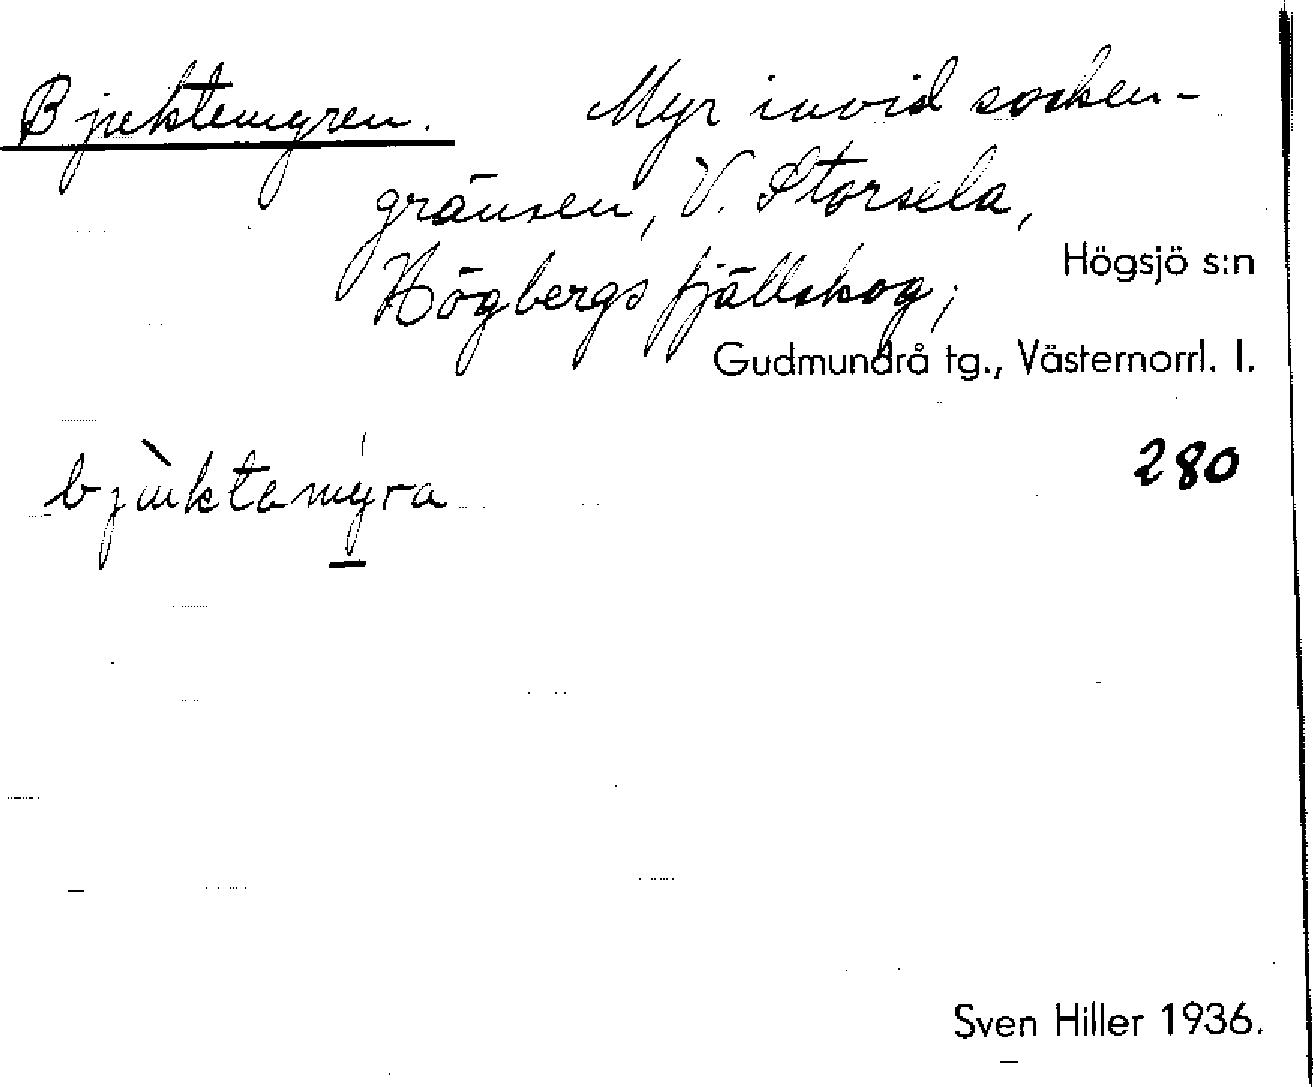 Bjuktemyren. Myr invid socken-
gränsen, V. Storsela,
Högbergs fjällskog;
Högsjö s:n
Gudmundrå tg., Västernorrl. l.
bjùktamýra
280
Sven Hiller 1936.